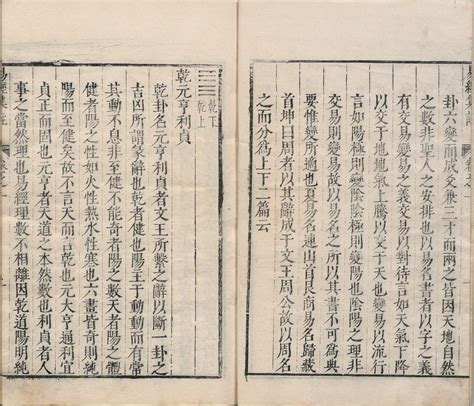 卦六變而成爻兼三才而兩之皆因天地自然
之數非聖人之安排也以易名書者以字之義
有交易變易之義交易以對待言如天氣下降
以交于地地氣上騰以交于天也變易以流行
言如陽極則變陰陰極則變陽也陰陽之理非
交易則變易故以易名之所以其書不可為典
要惟變所適也夏易名連山首艮商易名歸藏
首坤曰周者以其辭成于文王周公故以周名
之而分為上下二篇云
乾下
乾上
乾元亨利貞
乾卦名元亨利貞者文王所繫之辭以斷一卦之
吉凶所謂彖辭也乾者健也陽主于動動而有常
其動不息非至健不能奇者陽之數天者陽之體
健者陽之性如火性熱水性寒也六畫皆奇則純
陽而至健矣故不言天而言乾也元大亨通利宜
貞正而固也元亨者天道之本然數也利貞者人
事之當然理也易經理數不相離因乾道陽明純